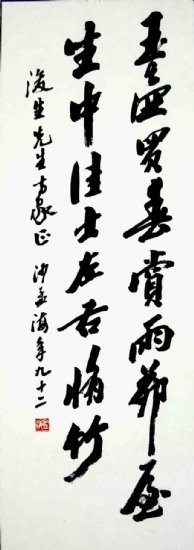 玉壺買春賞雨茆屋
坐中佳士左右脩竹
先生方家正 沙孟海年九十二